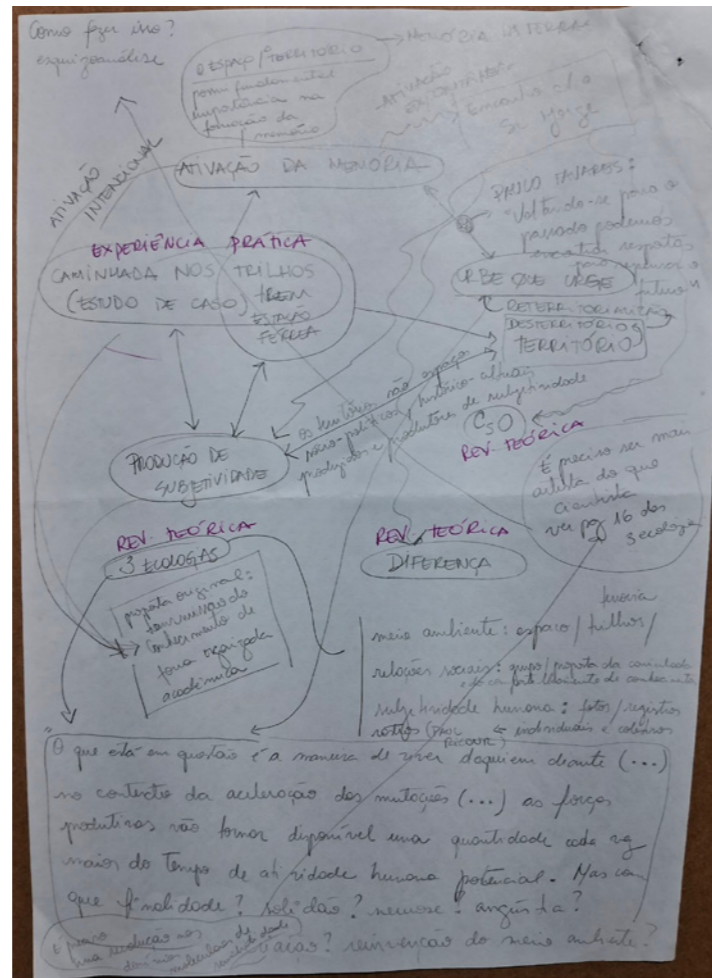 Como fazer isso?
esquizoanálise
O ESPAÇO/TERRITÓRIO
possui fundamental
importância na
formação da
memória
MEMÓRIA DA TERRA
ATIVAÇÃO
Encontro c/ o
Sr. Jorge
ATIVAÇÃO
INTENCIONAL
ATIVAÇÃO DA MEMÓRIA
PAULO TAVARES:
"Voltando-se para o
passado podemos
encontrar respostas
para repensar o
futuro"
EXPERIÊNCIA PRÁTICA
CAMINHADA NOS TRILHOS
(ESTUDO DE CASO) TREM
ESTAÇÃO
FÉRREA
URBE QUE URGE
RETERRITORIALIZAÇÃO
DESTERRITÓRIOS
TERRITÓRIO
os territórios são espaços
sócio-políticos, histórico-culturais
produzidos e produtores de subjetividade
CsO
REV. TEÓRICA
PRODUÇÃO DE
SUBJETIVIDADE
É preciso ser mais
artista do que
cientista
ver pag 16 das
3 ecologias
REV. TEÓRICA
3 ECOLOGAS
REV. TEÓRICA
DIFERENÇA
proposta original:
transmissão do
conhecimento de
forma organizada
acadêmica
meio ambiente: espaço / trilhos /
relações sociais: grupo / proposta da caminhada
compartilhamento de conhecimento
subjetividade humana: fotos / registros
rostos (PAUL RICOEUR) individuais e coletivos
O que está em questão é a maneira de viver daqui em diante (...)
no contexto da aceleração das mutações (...) as forças
produtivas vão tornar disponível uma quantidade cada vez
maior do tempo de atividade humana potencial. Mas com
que finalidade? solidão? neurose? angústia?
criação? reinvenção do meio ambiente?
É preciso
uma revolução nos
domínios moleculares de
sensibilidade